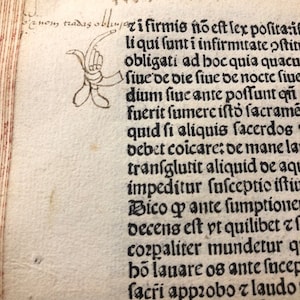 nom tradas obliuio
⁊ ĩ firmis nõ est lex posita: is
li qui sunt ĩ infirmitate ↄstit
obligati ad hoc quia quacũ
siue de die siue de nocte siue
dium siue ante possunt
fuerit sumere istõ sacramẽ
quid si aliquis sacerdos
debet cõicare: de mane la
transglutit aliquid de aqu
impeditur susceptio isti
Dico ꝙ ante sumptione
decens est yt quilibet ⁊ s
corpaliter mundetur q
hõ lauare os ante sucep
sacri approbo ⁊ laudo